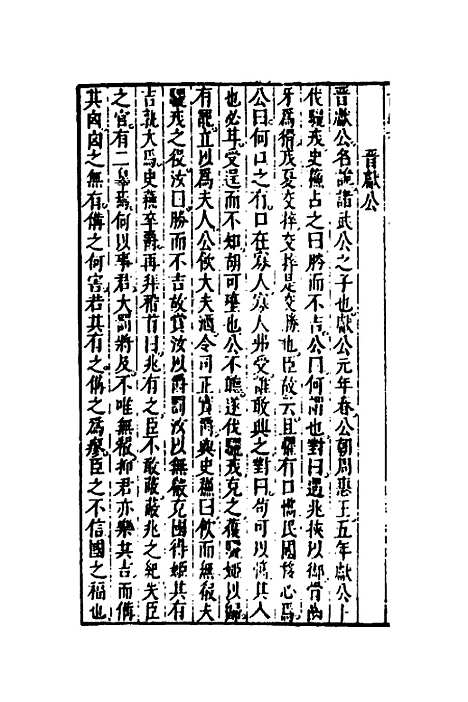 晉獻公
晉獻公名詭諸武公之子也獻公元年春公朝周惠王五年獻公卜
伐驪戎史蘇占之曰勝而不吉公曰何謂也對曰遇兆挾以銜骨齒
牙爲猾戎夏交捽交捽是交勝也臣故云且懼有口㩦民國移心焉
公曰何口之有口在寡人寡人弗受誰敢興之對曰苟可以㩦其人
也必甘受逞而不知胡可壅也公不聽遂伐驪戎克之獲驪姬以歸
有寵立以爲夫人公飲大夫酒令司正實爵與史蘇曰飲而無殽夫
驪戎之役汝曰勝而不吉故賞汝以爵罰汝以無殽克國得妃其有
吉孰大焉史蘇卒爵再拜稽首曰兆有之臣不敢蔽蔽兆之紀失臣
之官有二辠焉何以事君大罰將及不唯無殽抑君亦樂其吉而備
其凶凶之無有備之何害若其有之備之爲瘳臣之不信國之福也